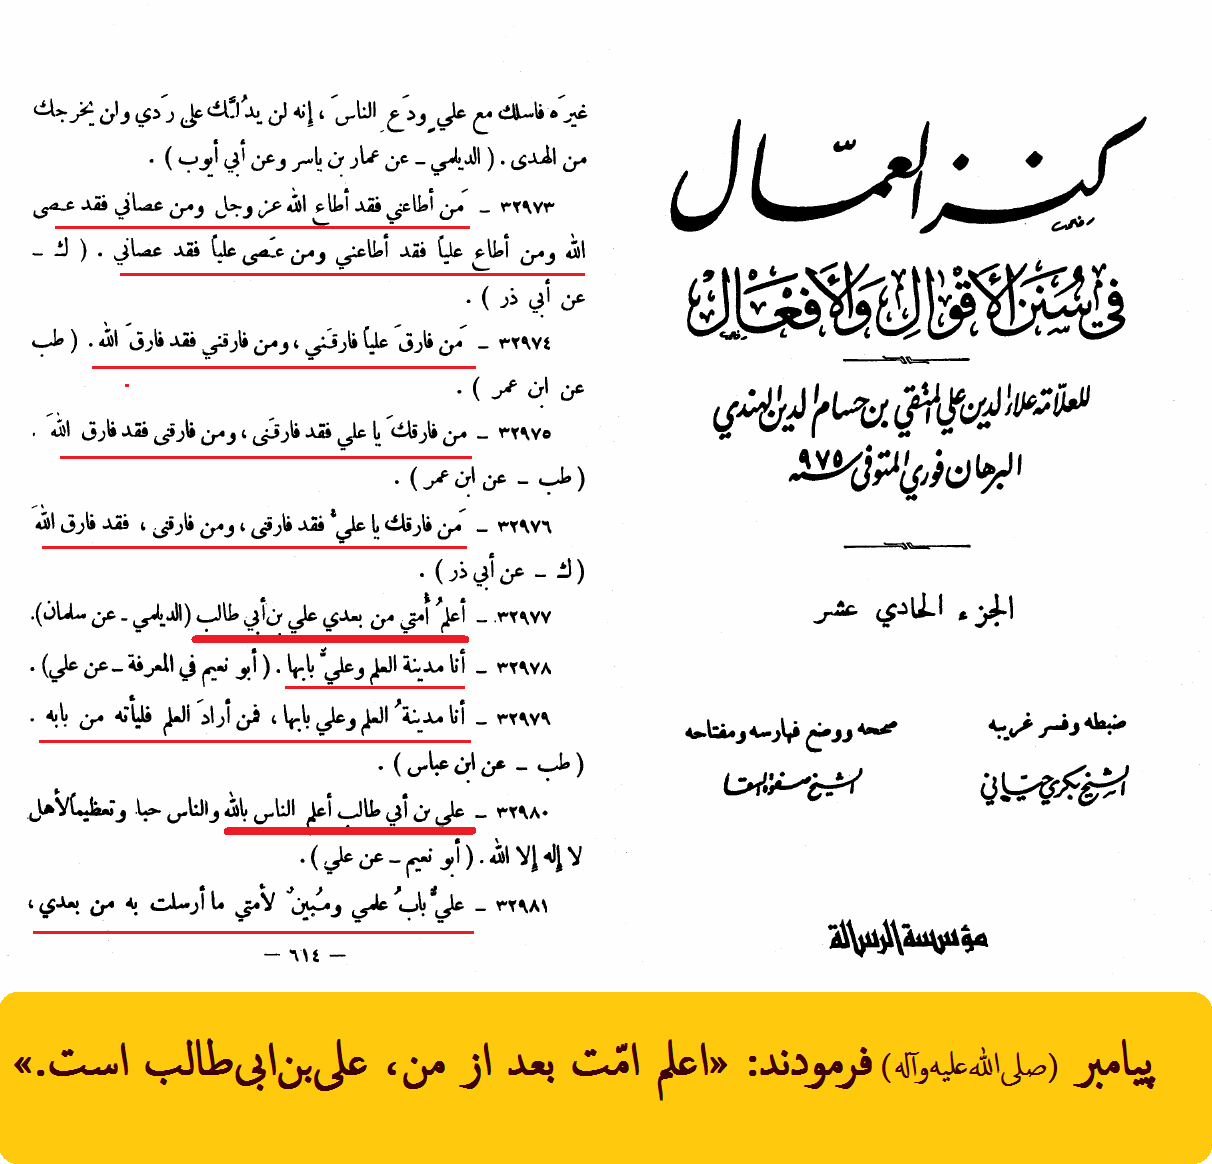 كنز العمال
في سنن الأقوال والأفعال
للعلامة علاء الدين علي المتقي بن حسام الدين الهندي
البرهان فوري المتوفى سنة ٩٧٥
الجزء الحادي عشر
ضبطه وفسر غريبه
الشيخ بكري حياني
صححه ووضع فهارسه ومفتاحه
الشيخ صفوة السقا
مؤسسة الرسالة
غيرَه فاسلك مع عليٍ ودَعِ الناسَ ، إنه لن يدُلَّك على رَدي ولن يخرجك
من الهدى . ( الديلمي ـ عن عمار بن ياسر وعن أبي أيوب ) .
٣٢٩٧٣ ـ مَن أطاعني فقد أطاع الله عز وجل ومن عصاني فقد عصى
الله ومن أطاع علياً فقد أطاعني ومن عَصى علياً فقد عصاني . ( ك ـ
عن أبي ذر ) .
٣٢٩٧٤ ـ مَن فارقَ علياً فارقَني ، ومن فارقني فقد فارقَ الله . ( طب
عن ابن عمر ) .
٣٢٩٧٥ ـ من فارقكَ يا علي فقد فارقَنى ، ومن فارقنى فقد فارق اللهَ .
( طب ـ عن ابن عمر ) .
٣٢٩٧٦ ـ مَن فارقك يا عليُّ فقد فارقنى ، ومن فارقنى ، فقد فارق اللهَ
( ك ـ عن أبي ذر ) .
٣٢٩٧٧ ـ أعلمُ أُمتي من بعدي علي بن أبي طالب (الديلمي ـ عن سلمان).
٣٢٩٧٨ ـ أنا مدينة العلم وعليٌّ بابها . ( أبو نعيم في المعرفة ـ عن علي) .
٣٢٩٧٩ ـ أنا مدينةُ العلم وعلي بابها ، فمن أرادَ العلم فليأته من بابه .
( طب ـ عن ابن عباس ) .
٣٢٩٨٠ ـ علي بن أبي طالب أعلم الناس بالله والناس حبا وتعظيماً لأهل
لا إله إلا الله . ( أبو نعيم ـ عن علي ) .
٣٢٩٨١ ـ عليٌّ بابُ علمي ومُبينٌ لأمتي ما أرسلت به من بعدي ،
— ٦١٤ —
پیامبر (صلی‌الله‌علیه‌وآله) فرمودند: «اعلم امّت بعد از من، علی‌بن‌ابی‌طالب است.»